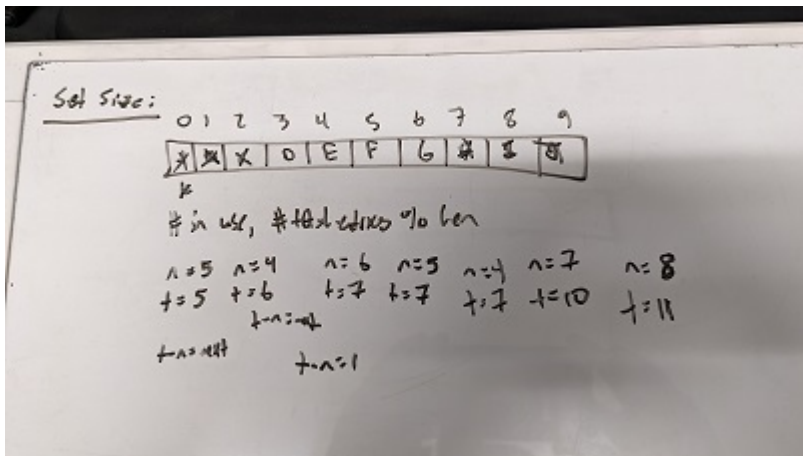 Set Size:
0 1 2 3 4 5 6 7 8 9
X D E F G
# in use, # total entries % len
n=5 n=4 n=6 n=5 n=4 n=7 n=8
t=5 t=6 t=7 t=7 t=7 t=10 t=11
t-n=
t-n=next
t-n=1